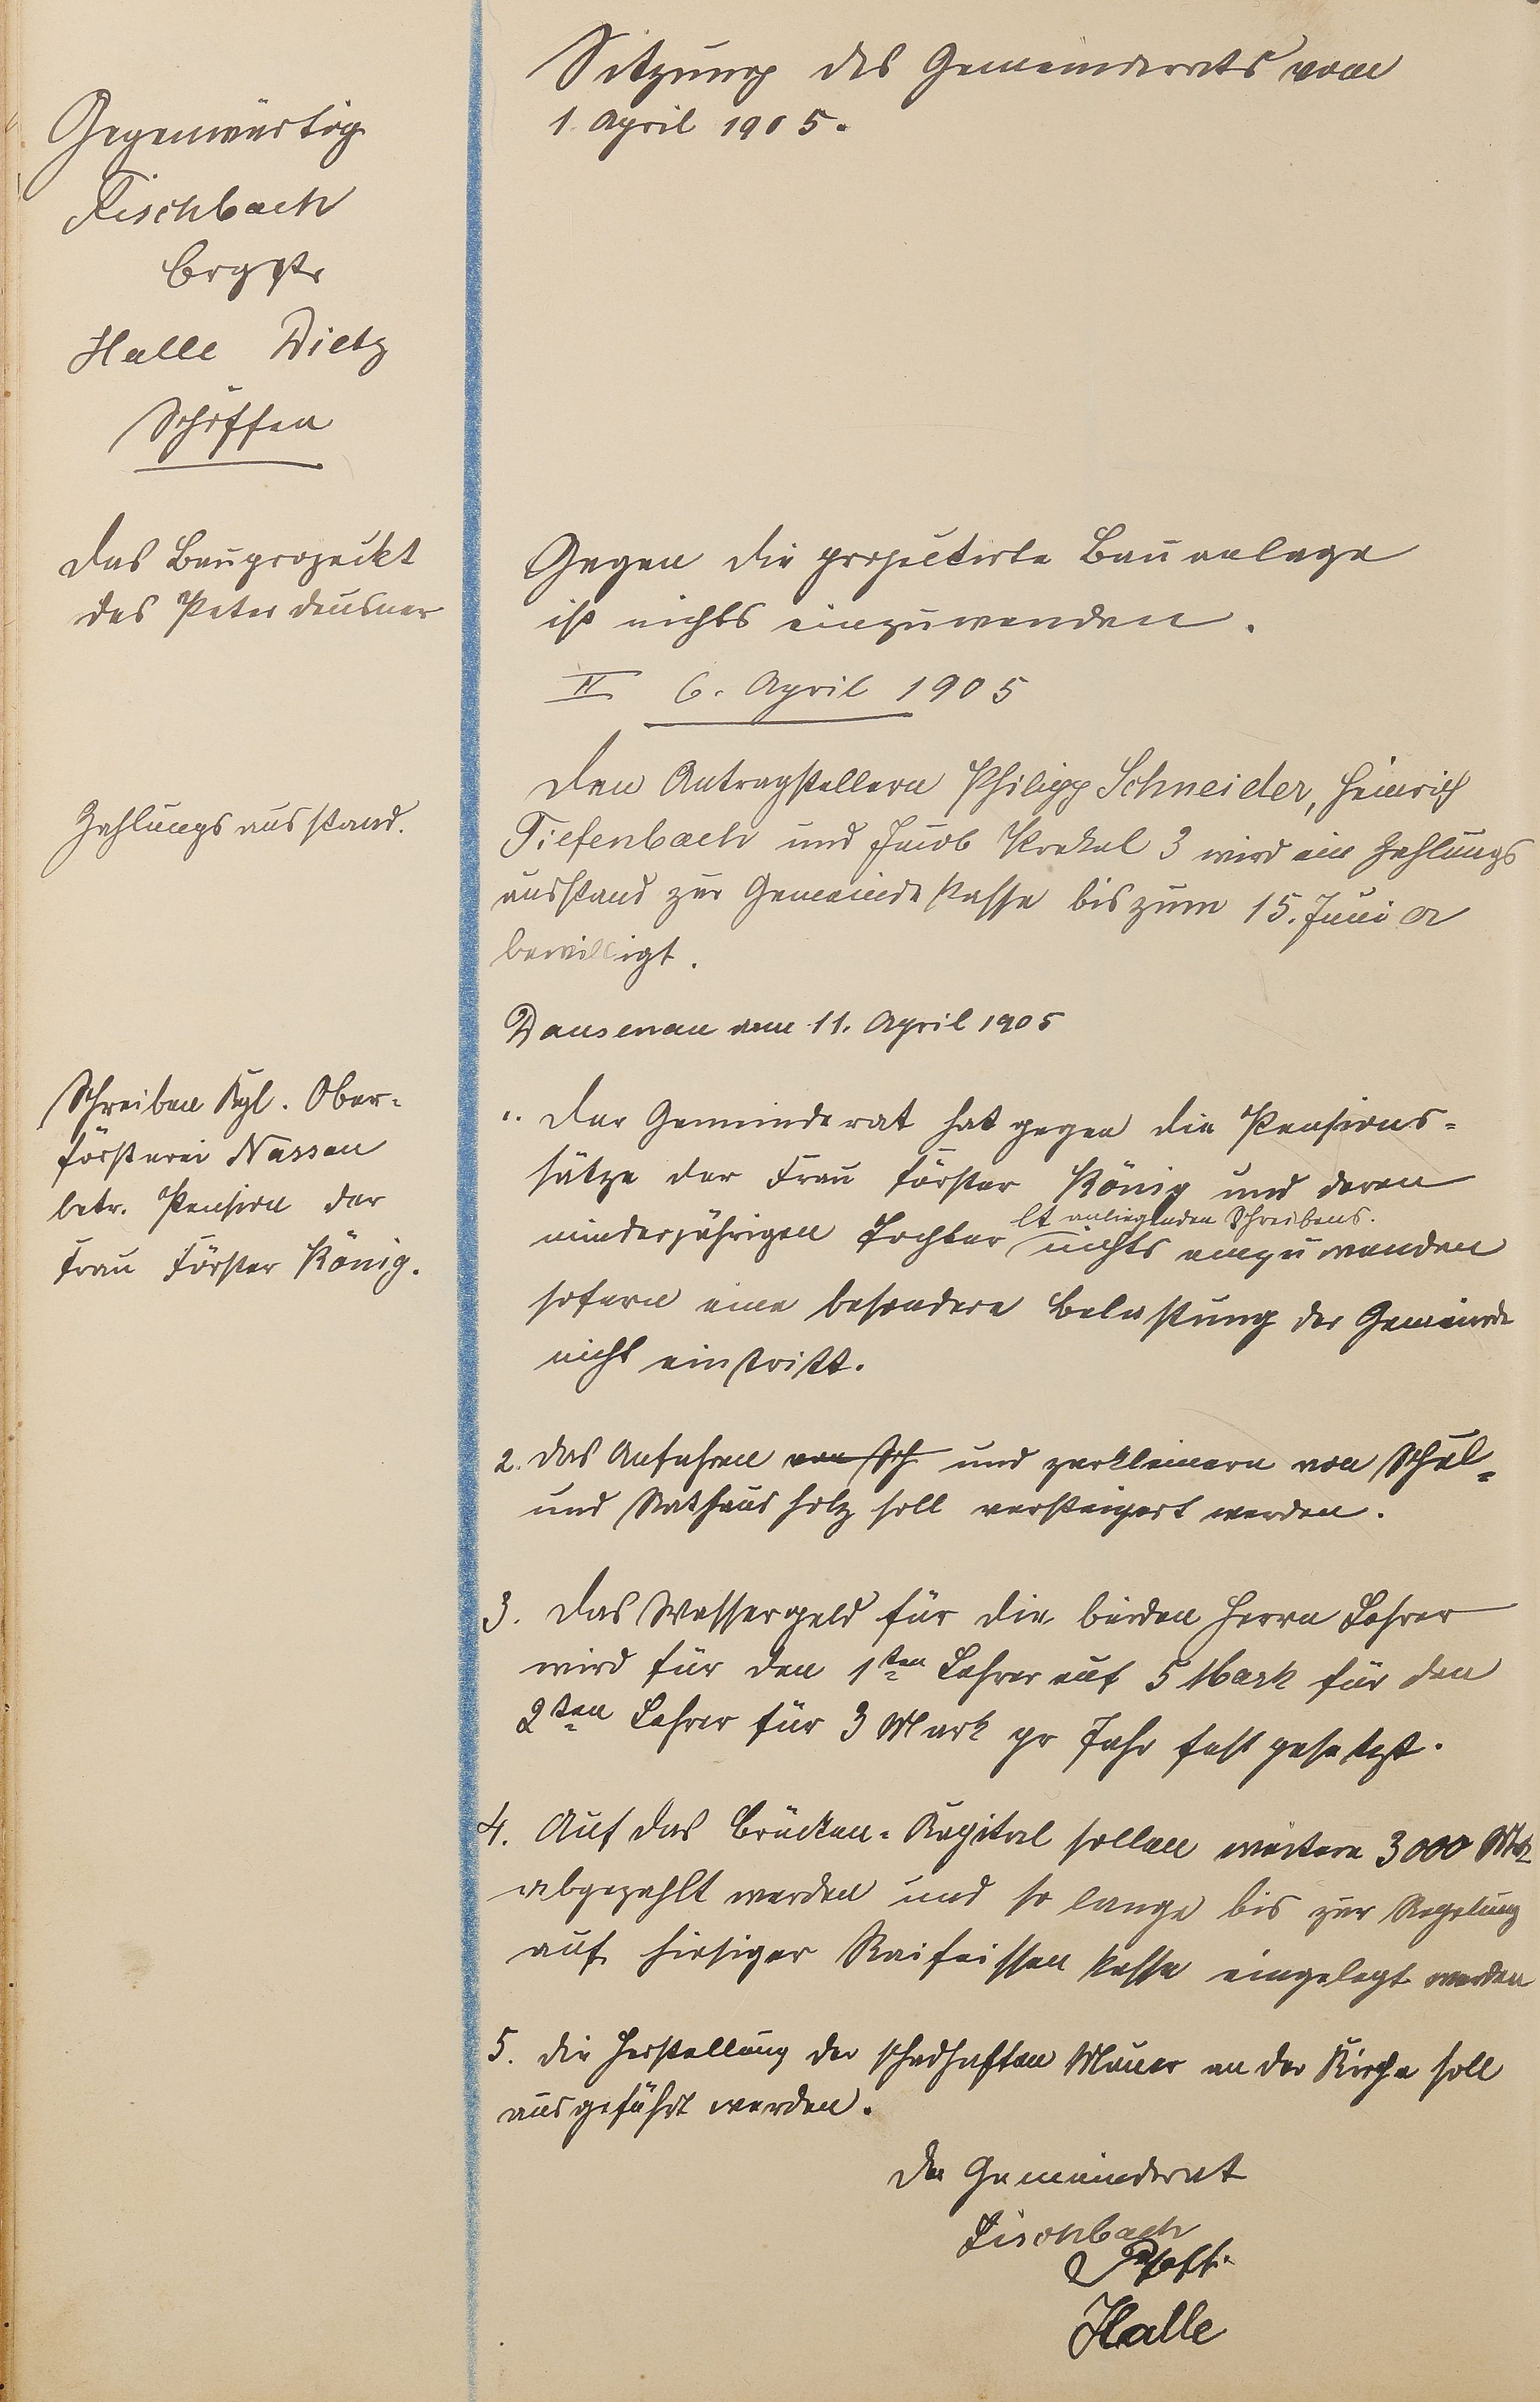 Sitzung des Gemeinderats vom
1. April 1905.
Gegenwärtig
Fischbach
Brgstr
Halle Dietz
Schöffen
Das Bauprojeckt
des Peter Deusner
Gegen die projectirte Bauanlage
ist nichts einzuwenden.
II 6. April 1905
Zahlungsausstand.
Den Antragstellern Philipp Schneider, Heinrich
Tiefenbach und Jacob Krekel 3 wird ein Zahlungs
ausstand zur Gemeindekasse bis zum 15. Juni cr
bewilligt.
Dausenau am 11. April 1905
Schreiben Kgl. Ober-
försterei Nassau
betr. Pension der
Frau Förster König.
1. Der Gemeinderat hat gegen die Pensions-
sätze der Frau Förster König und deren
lt anliegenden Schreibens.
minderjährigen Tochter nichts einzuwenden
sofern eine besondere Belastung der Gemeinde
nicht eintritt.
2. Das Anfahren von Sch und zerkleinern von Schul-
und Rathausholz soll versteigert werden.
3. Das Wassergeld für die beiden Herrn Lehrer
wird für den 1ten Lehrer auf 5 Mark für den
2ten Lehrer für 3 Mark pr Jahr festgesetzt.
4. Auf das Brücken-Kapital sollen weitere 3000 Mk
abgezahlt werden und so lange bis zur Regelung
auf hiesiger Raifeissenkasse eingelegt werden
5. Die Herstellung der schadhaften Mauer an der Kirche soll
ausgeführt werden.
Der Gemeinderat
Fischbach
Halle